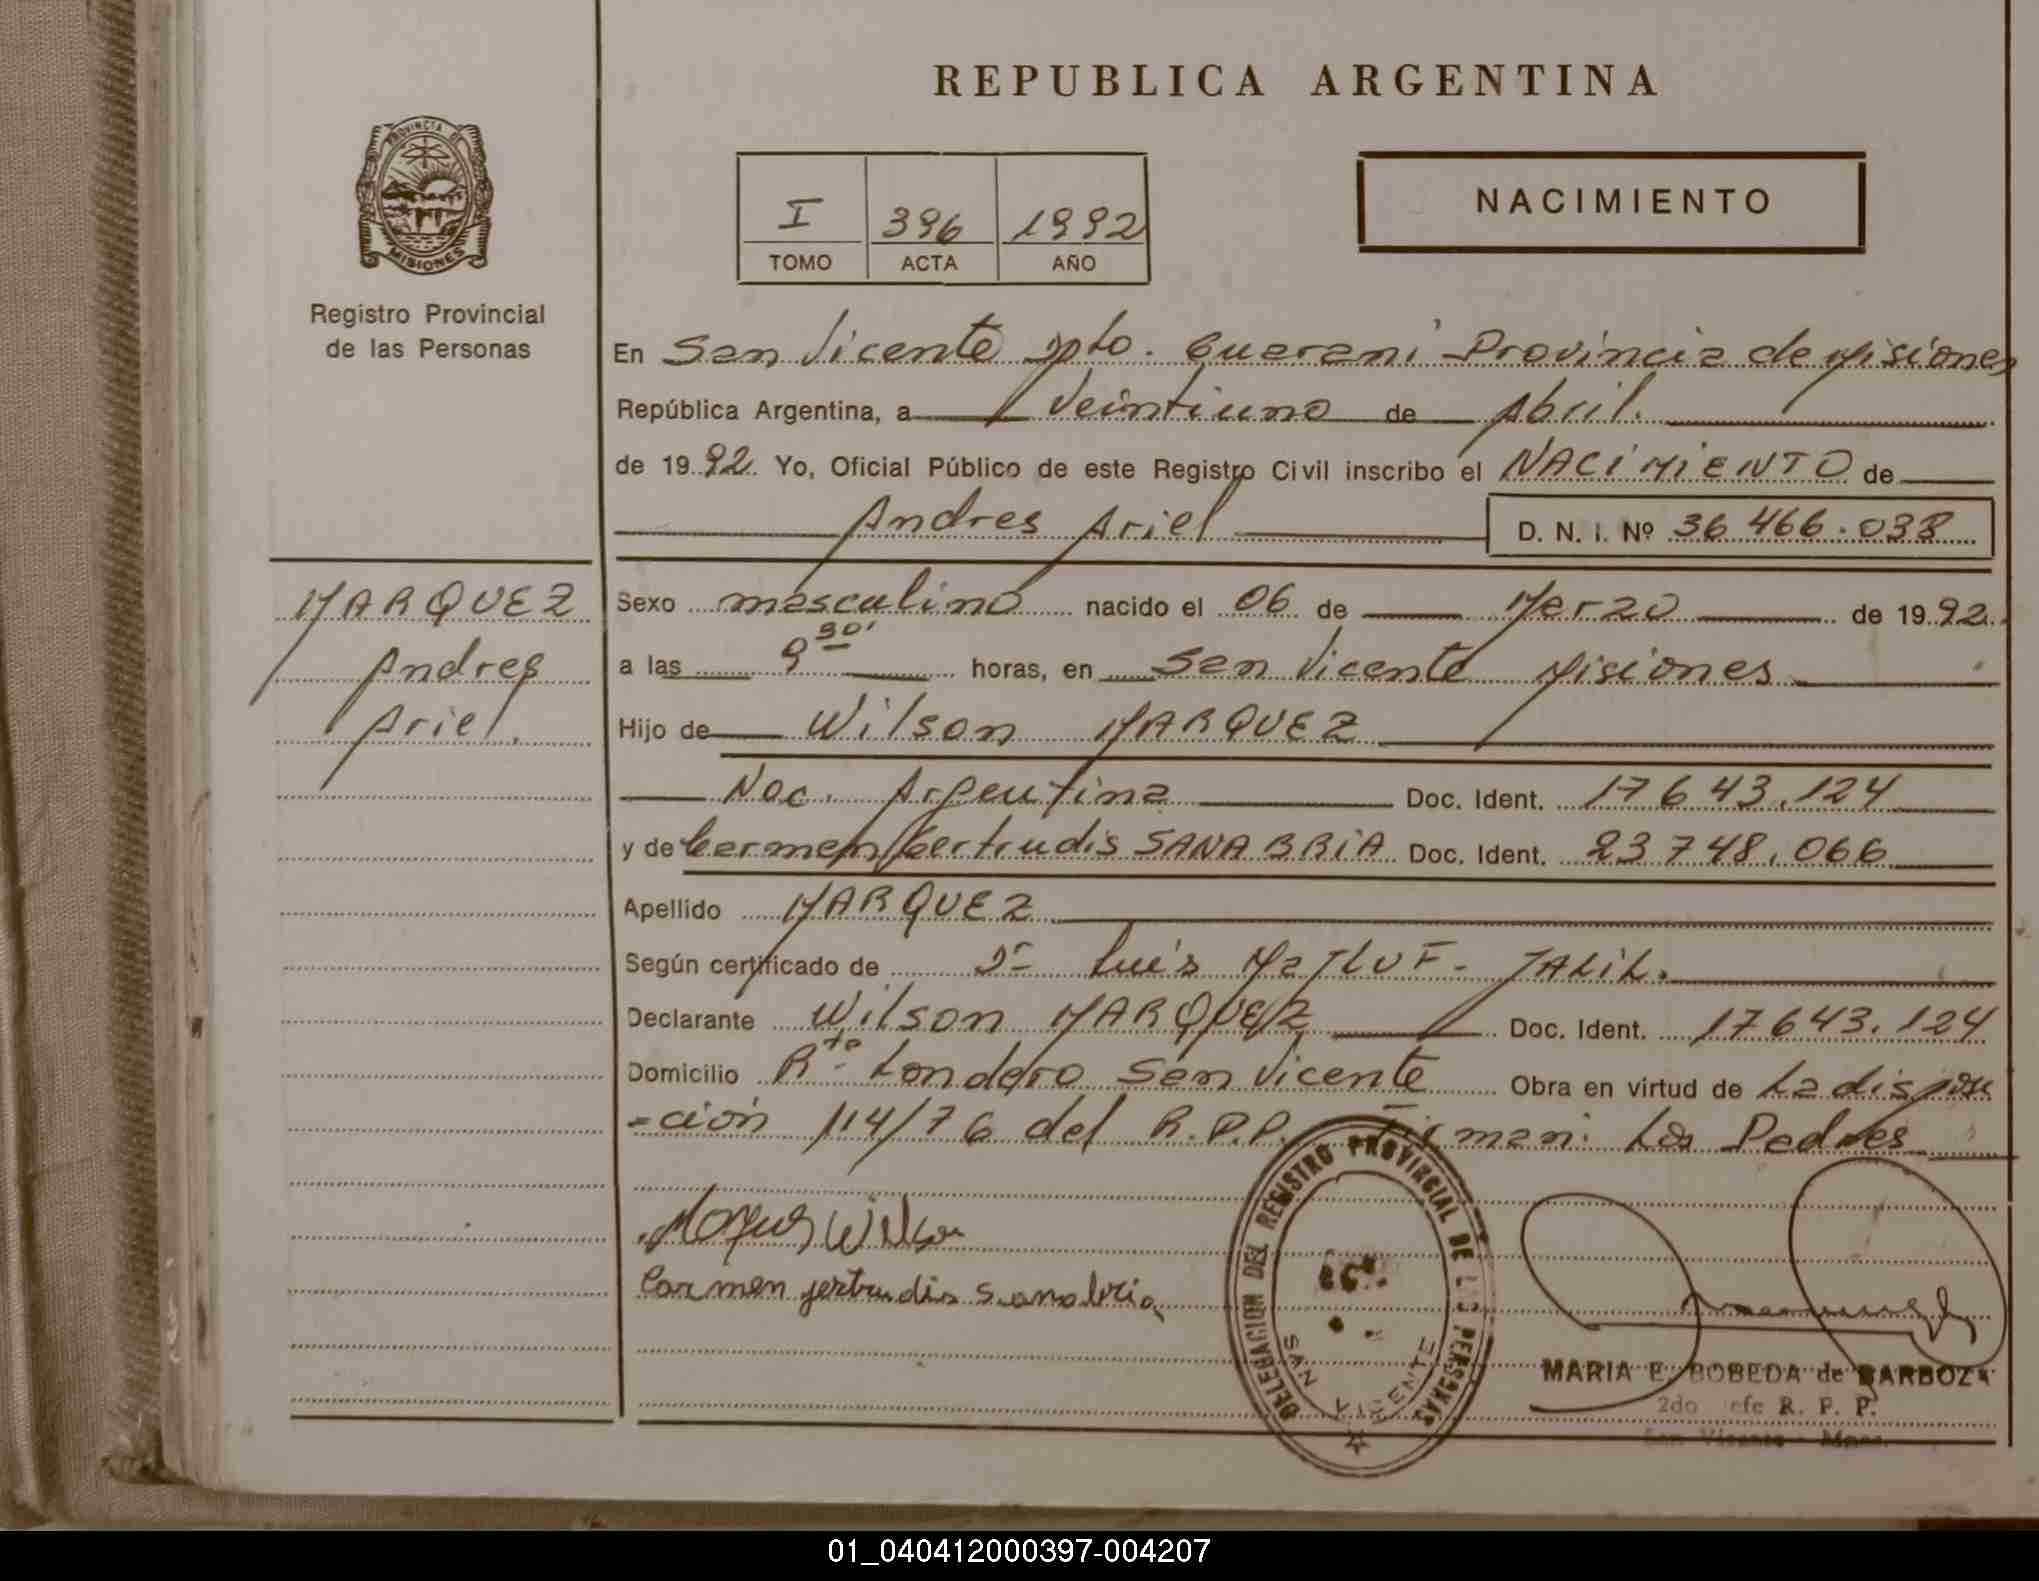 REPUBLICA ARGENTINA
PROVINCIA DE
MISIONES
Registro Provincial
de las Personas
I 396 1992
TOMO ACTA AÑO
NACIMIENTO
En San Vicente Dpto. Guarani Provincia de Misiones
República Argentina, a Veintiuno de Abril.
de 1992. Yo, Oficial Público de este Registro Civil inscribo el NACIMIENTO de
Andres Ariel D. N. I. Nº 36 466.038
MARQUEZ
Andres
Ariel.
Sexo masculino nacido el 06 de Marzo de 1992.
a las 9 30' horas, en San Vicente Misiones
Hijo de Wilson MARQUEZ
Nac. Argentina Doc. Ident. 17643.124
y de Carmen Gertrudis SANABRIA Doc. Ident. 23748.066
Apellido MARQUEZ
Según certificado de Dr Luis MaTLUF - JALIL.
Declarante Wilson MARQUEZ Doc. Ident. 17643.124
Domicilio Rto Londero San Vicente Obra en virtud de La disposi
-ción 114/76 del R.P.P. Firman: Los Padres
Wilson
Carmen jertrudis sanabria
DELEGACION DEL REGISTRO PROVINCIAL DE LAS PERSONAS
SAN VICENTE
MARIA E. BOBEDA de BARBOZA
2do Jefe R. P. P.
San Vicente - Mnes.
01_040412000397-004207